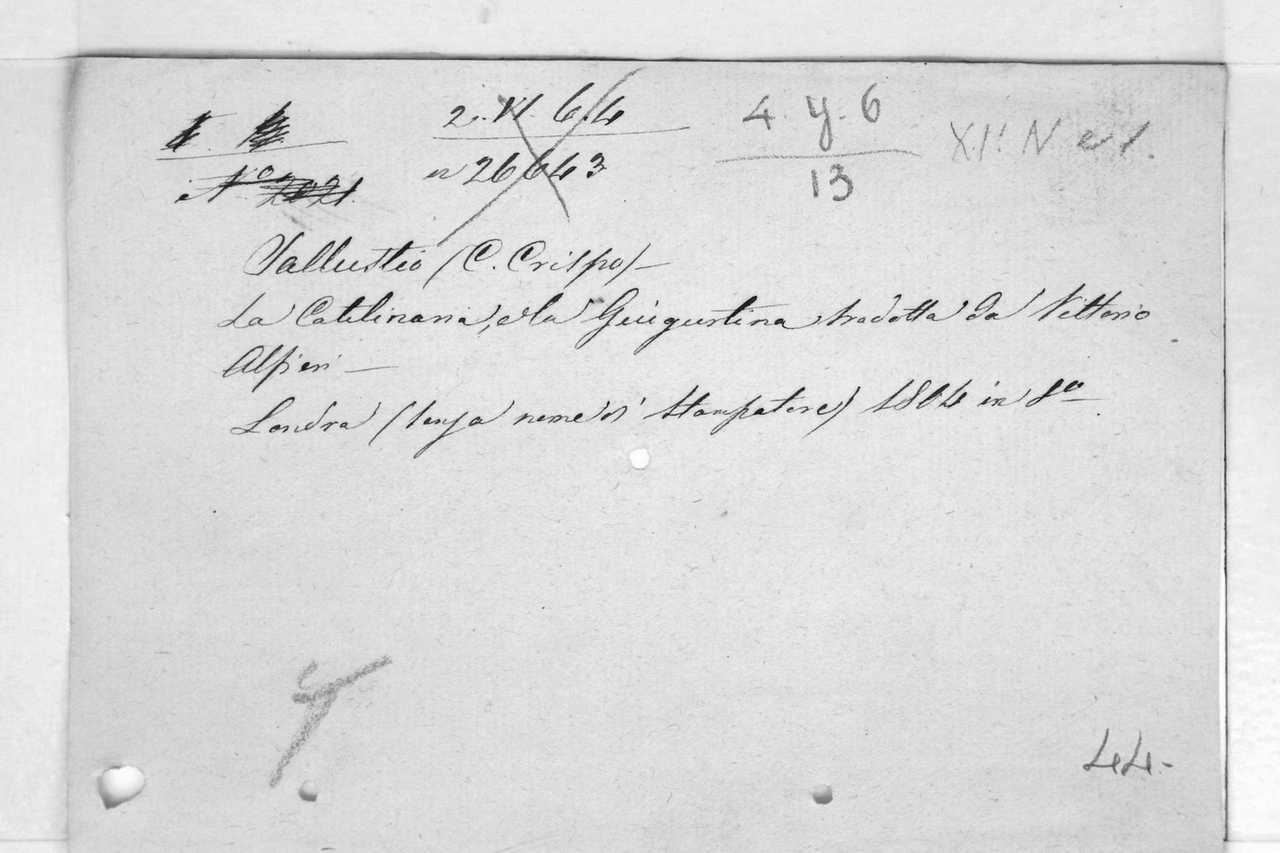 2. VI. 6.4
n 26643
4. y. 6
13
N° 2021
Sallustio (C. Crispo) —
La Catilinaria, e la Giugurtina tradotta da Vittorio
Alfieri —
Londra (senza nome di stampatore) 1804 in 8°
44-